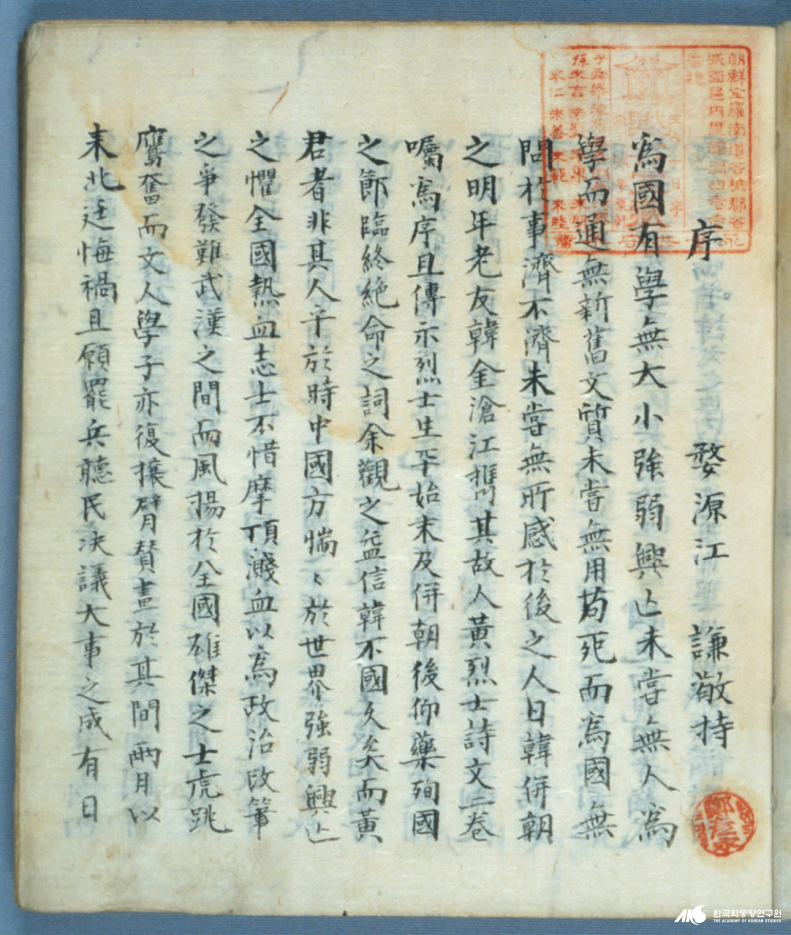 序
婺源江 謙 敬持
爲國有學無大小強弱興亡未嘗無人爲
學而通無新舊文質未嘗無用苟死而爲國無
問於事濟不濟未嘗無所感於後之人日韓併朝
之明年老友韓金滄江携其故人黃烈士詩文二卷
囑爲序且傳示烈士生平始末及併朝後仰藥殉國
之節臨終絶命之詞余觀之益信韓不國久矣而黃
君者非其人乎於時中國方惴〻於世界強弱興亡
之懼全國熱血志士不惜摩頂濺血以爲政治改革
之爭發難武漢之間而風揚於全國雄傑之士虎跳
鷹奮而文人學子亦復攘臂贊畫於其間兩月以
來北廷悔禍且願罷兵聽民決議大事之成有日
朝鮮全羅南道谷城郡谷
한국학중앙연구원
THE ACADEMY OF KOREAN STUDIES